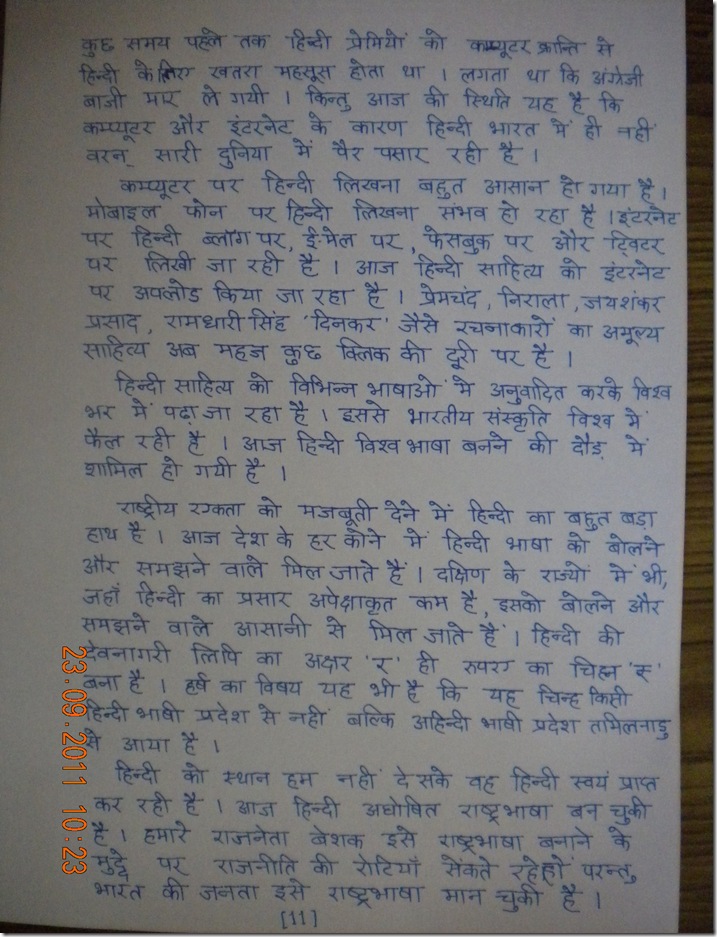 कुछ समय पहले तक हिन्दी प्रेमियों को कम्प्यूटर क्रान्ति से
हिन्दी के लिए खतरा महसूस होता था । लगता था कि अंग्रेजी
बाजी मार ले गयी । किन्तु आज की स्थिति यह है कि
कम्प्यूटर और इंटरनेट के कारण हिन्दी भारत में ही नहीं
वरन् सारी दुनिया में पैर पसार रही है ।
कम्प्यूटर पर हिन्दी लिखना बहुत आसान हो गया है ।
मोबाइल फोन पर हिन्दी लिखना संभव हो रहा है । इंटरनेट
पर हिन्दी ब्लॉग पर, ई-मेल पर, फेसबुक पर और ट्विटर
पर लिखी जा रही है । आज हिन्दी साहित्य को इंटरनेट
पर अपलोड किया जा रहा है । प्रेमचंद, निराला, जयशंकर
प्रसाद, रामधारी सिंह 'दिनकर' जैसे रचनाकारों का अमूल्य
साहित्य अब महज कुछ क्लिक की दूरी पर है ।
हिन्दी साहित्य को विभिन्न भाषाओं मे अनुवादित करके विश्व
भर में पढ़ा जा रहा है । इससे भारतीय संस्कृति विश्व में
फैल रही है । आज हिन्दी विश्व भाषा बनने की दौड़ में
शामिल हो गयी है ।
राष्ट्रीय एकता को मजबूती देने में हिन्दी का बहुत बड़ा
हाथ है । आज देश के हर कोने में हिन्दी भाषा को बोलने
और समझने वाले मिल जाते हैं । दक्षिण के राज्यों में भी,
जहाँ हिन्दी का प्रसार अपेक्षाकृत कम है, इसको बोलने और
समझने वाले आसानी से मिल जाते हैं । हिन्दी की
देवनागरी लिपि का अक्षर 'र' ही रुपए का चिह्न '₹'
बना है । हर्ष का विषय यह भी है कि यह चिन्ह किसी
हिन्दी भाषी प्रदेश से नहीं बल्कि अहिन्दी भाषी प्रदेश तमिलनाडु
से आया है ।
हिन्दी को स्थान हम नहीं दे सके वह हिन्दी स्वयं प्राप्त
कर रही है । आज हिन्दी अघोषित राष्ट्रभाषा बन चुकी
है । हमारे राजनेता बेशक इसे राष्ट्रभाषा बनाने के
मुद्दे पर राजनीति की रोटियाँ सेंकते रहे हों परन्तु
भारत की जनता इसे राष्ट्रभाषा मान चुकी है ।
[11]
23.09.2011 10:23